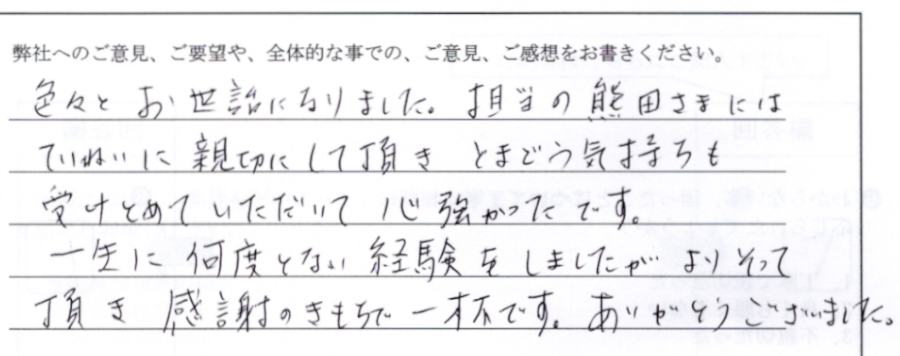 弊社へのご意見、ご要望や、全体的な事での、ご意見、ご感想をお書きください。
色々と お世話になりました。担当の熊田さまには
ていねいに 親切にして頂き とまどう気持ちも
受けとめて いただいて 心強かったです。
一生に 何度とない 経験を しましたが よりそって
頂き 感謝のきもちで 一杯です。ありがとうございました。